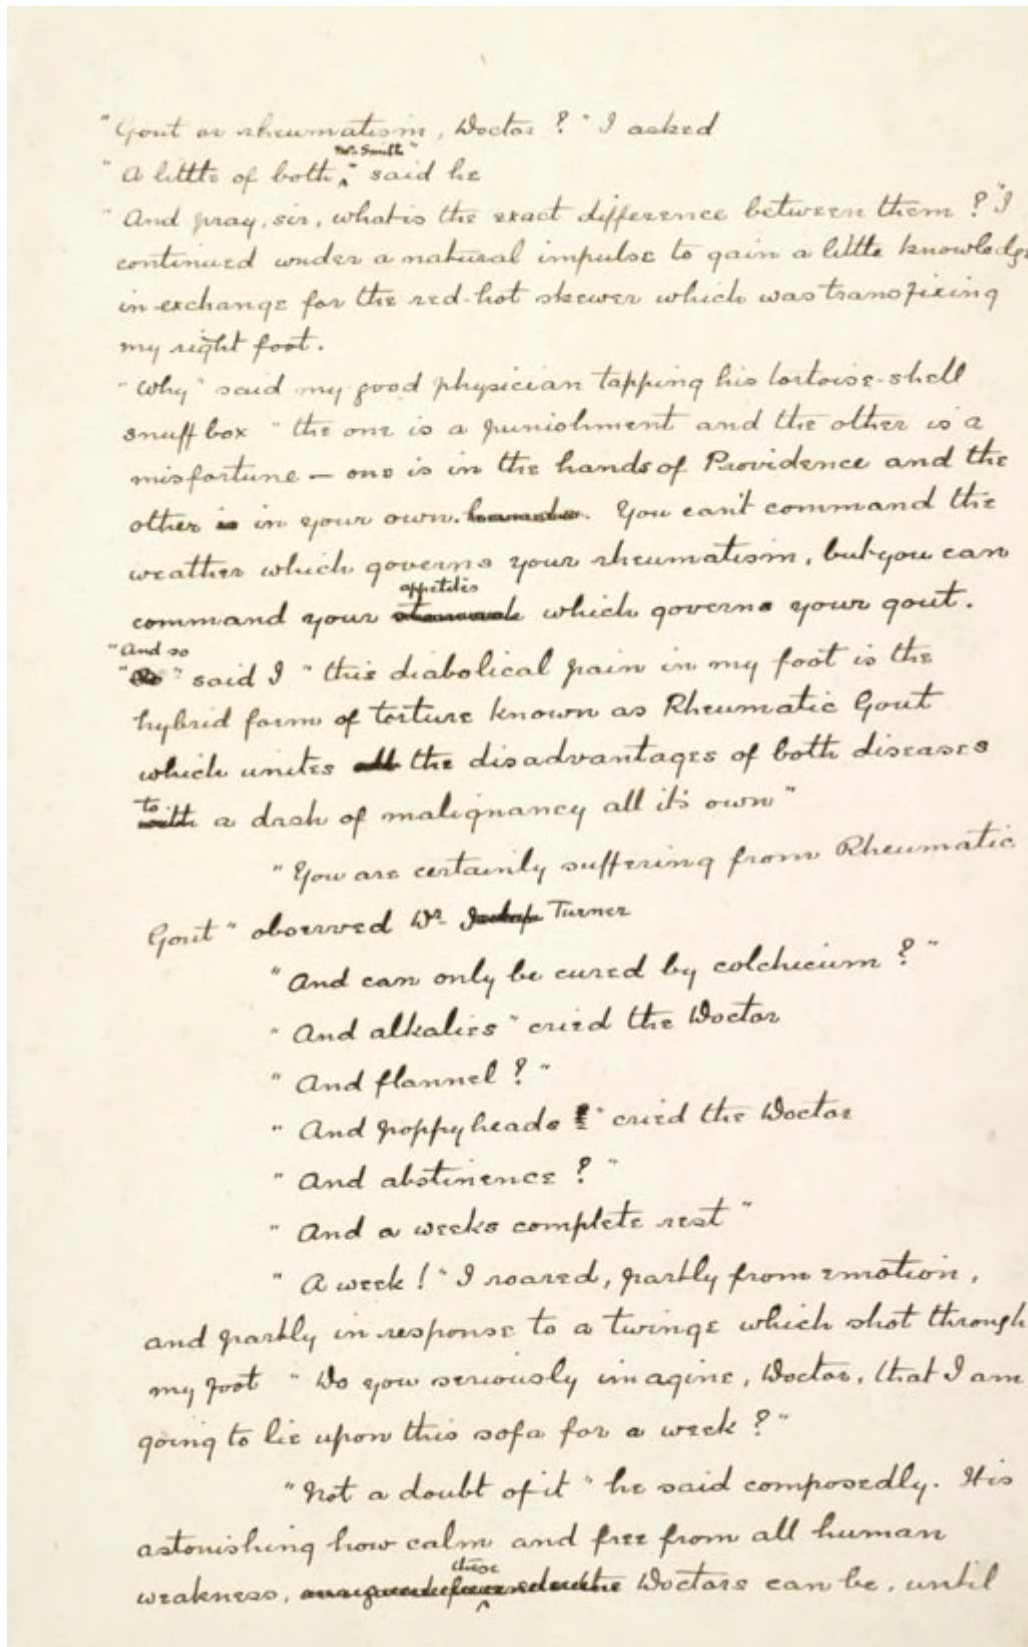 "Gout or rheumatism, Doctor?" I asked
"A little of both, Mr. Smith" said he
"And pray, sir, what is the exact difference between them?" I
continued under a natural impulse to gain a little knowledge
in exchange for the red-hot skewer which was transfixing
my right foot.
"Why" said my good physician tapping his tortoise-shell
snuff box "the one is a punishment and the other is a
misfortune — one is in the hands of Providence and the
other is in your own. hands. You can't command the
weather which governs your rheumatism, but you can
command your appetites stomach which governs your gout.
"And so
"So" said I "this diabolical pain in my foot is the
hybrid form of torture known as Rheumatic Gout
which unites all the disadvantages of both diseases
to with a dash of malignancy all it's own"
"You are certainly suffering from Rheumatic
Gout" observed Dr. Turner
"And can only be cured by colchicum?"
"And alkalies" cried the Doctor
"And flannel?"
"And poppyheads" cried the Doctor
"And abstinence?"
"And a weeks complete rest"
"A week!" I roared, partly from emotion,
and partly in response to a twinge which shot through
my foot "Do you seriously imagine, Doctor, that I am
going to lie upon this sofa for a week?"
"Not a doubt of it" he said composedly. It is
astonishing how calm and free from all human
weakness, these Doctors can be, until